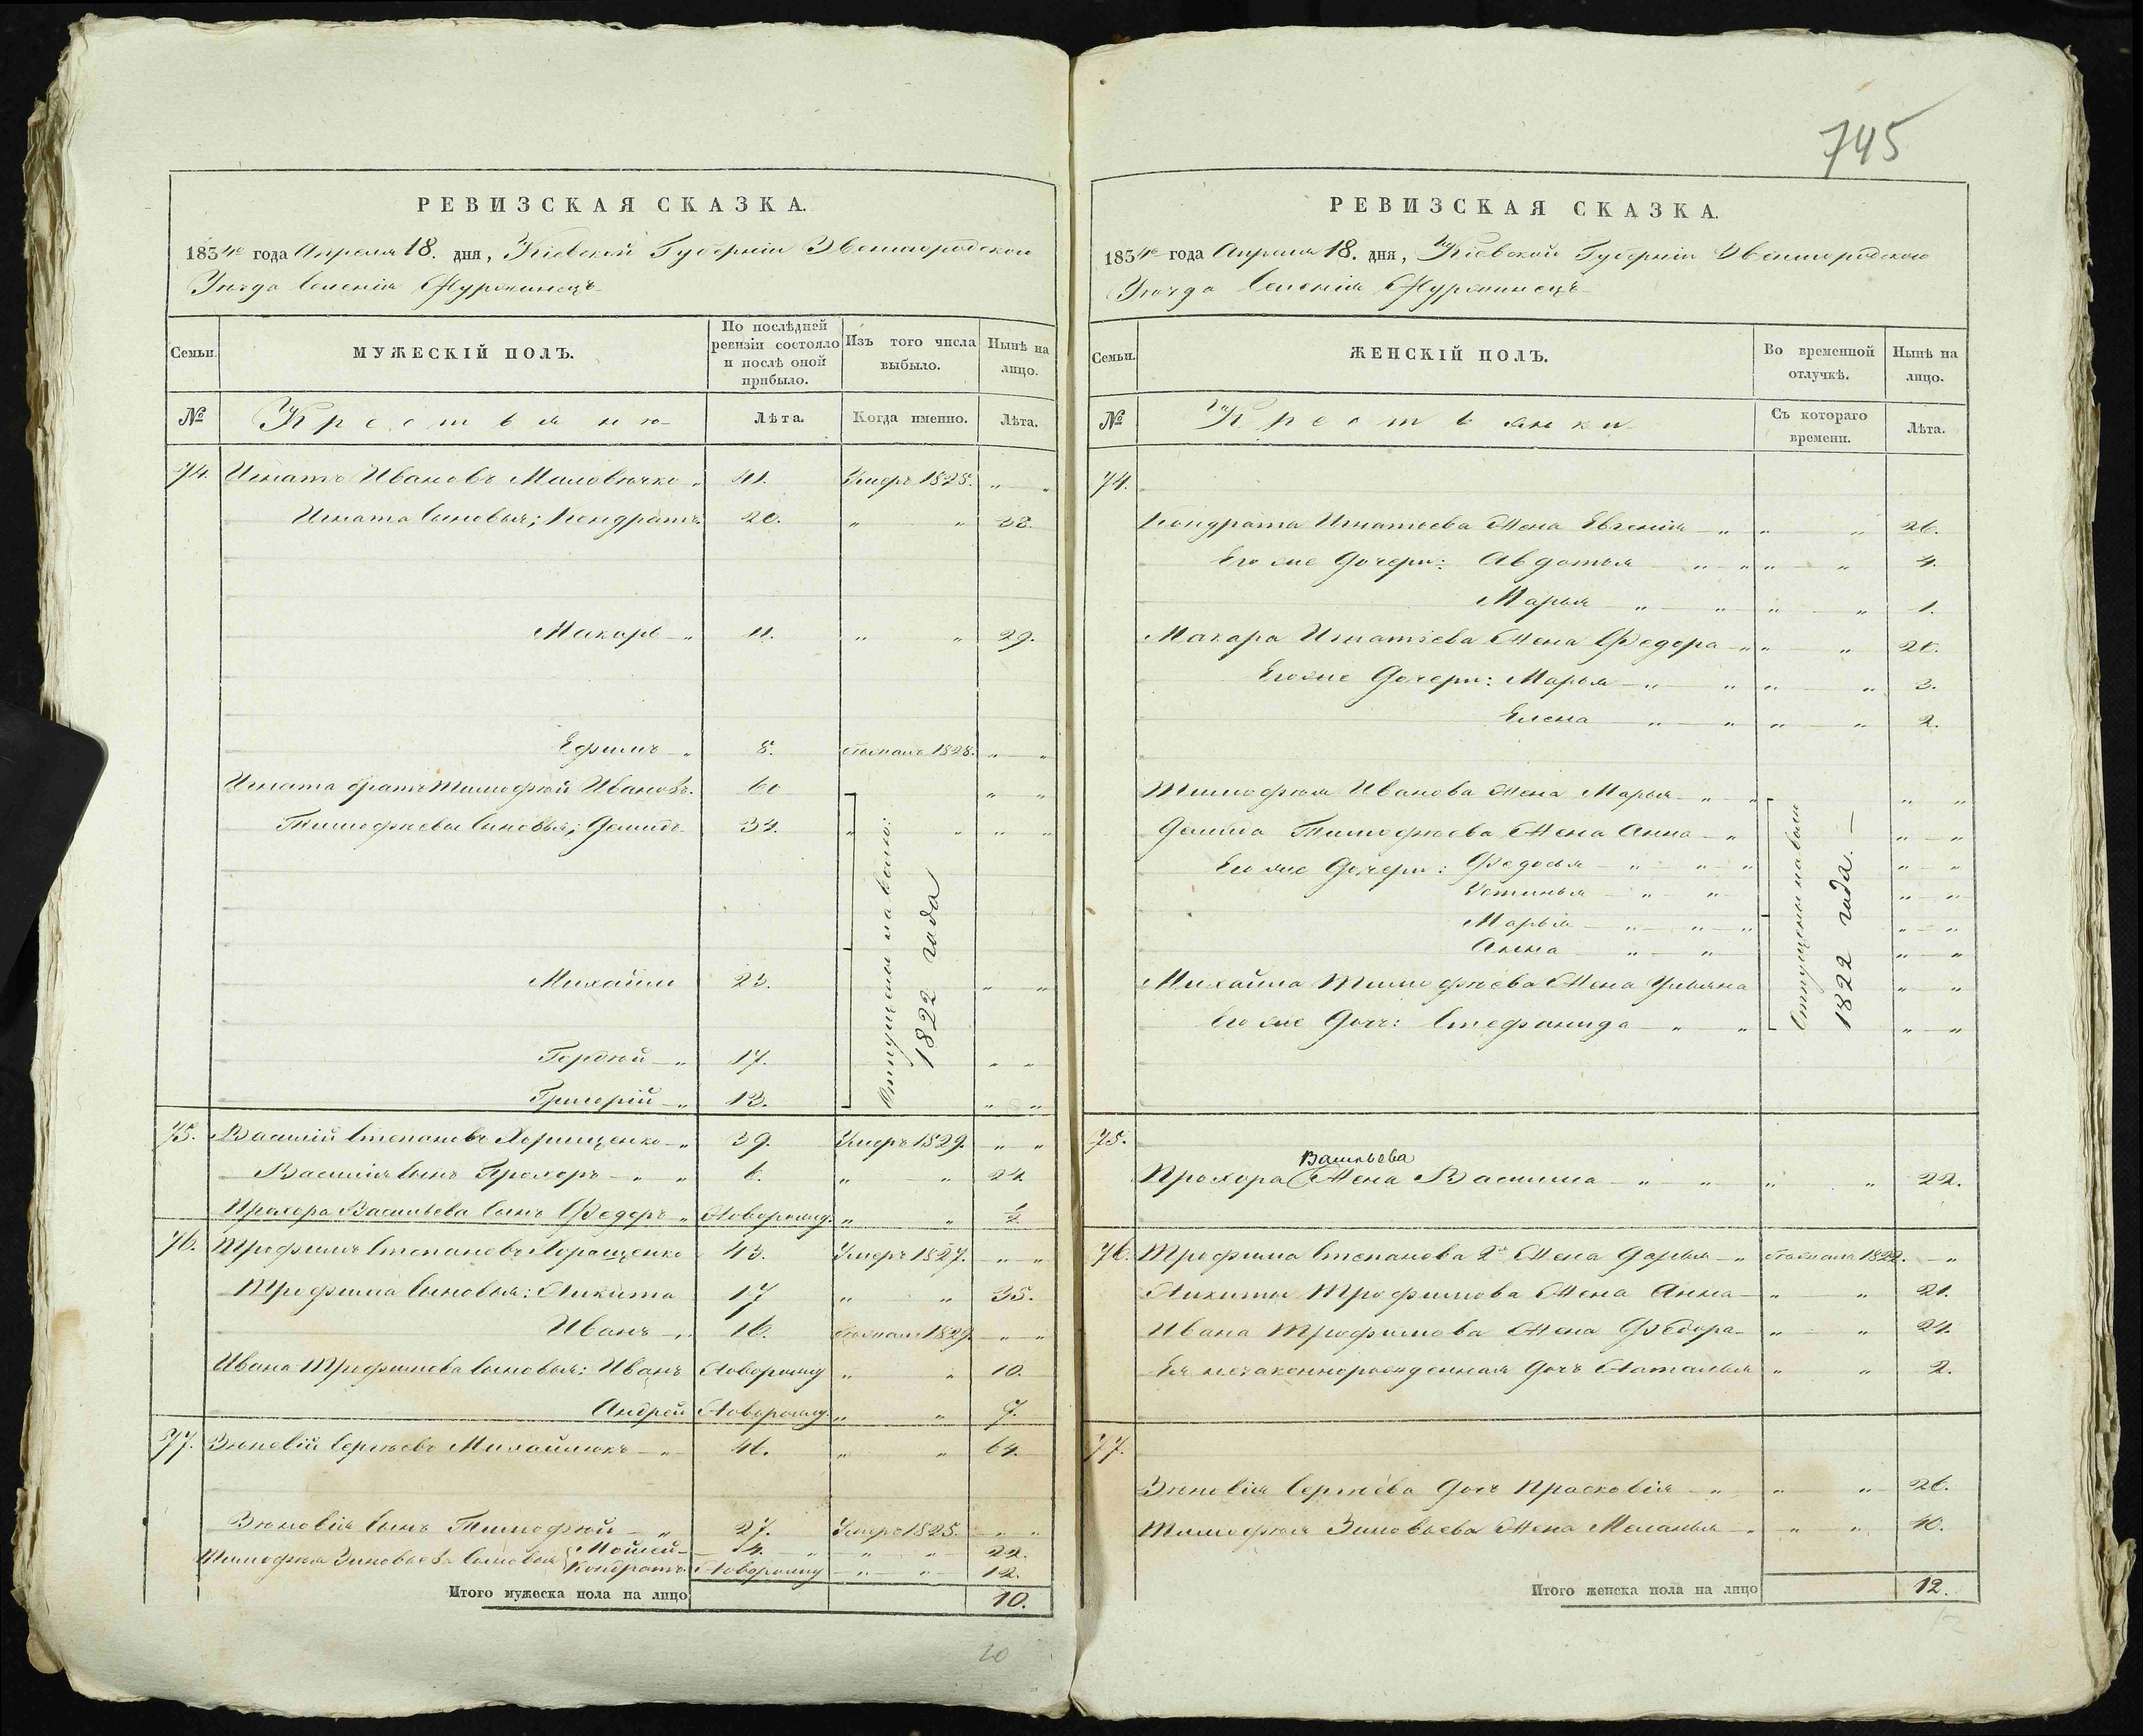 745
РЕВИЗСКАЯ СКАЗКА.
1834го года Апреля 18. дня, Кіевской Губерніи Звенигородскаго
Уезда Селенія Журжинецъ
Семьи.
МУЖЕСКІЙ ПОЛЪ.
По послѣдней ревизіи состояло и послѣ оной прибыло.
Изъ того числа выбыло.
Нынѣ на лицо.
№
Крестьяню
Лѣта.
Когда именно.
Лѣта.
74. Игнатъ Ивановъ 41. Умеръ 1828. " "
Игната Сыновья; Кондратъ 20. " "
Макаръ " 11. " " 29.
Ефимъ " 8. 1828. " "
Игната братъ Тимофѣй Ивановъ. 60 " "
Тимофѣевы Сыновья; Демидъ 34. " " " "
Михайло 23. " "
Гордѣй " 17. " "
Григорій " 13. " "
Отпущены на волю:
1822 года
75. Василій Степановъ Хорищенко " 39. Умеръ 1829. " "
Василія Сынъ Прохоръ " " 6. " " 24
Прохора Васильева Сынъ Федоръ " Новорожд. " " 1/2
76. Трофимъ Степановъ Хоращенко 43. Умеръ 1827. " "
Трофима Сыновья: Никита 17 " " 35.
Иванъ " 16. 1829. " "
Ивана Трофимова Сыновья: Иванъ Новорожд " " 10.
Андрей Новорожд. " " 7.
77. Зѣновій Сергѣевъ Михайлюкъ " 46. " " 64.
Зѣновія Сынъ Тимофѣй " 27. Умеръ 1825. " "
Тимофѣя Зиновьева Сыновья Мойсей 4. " " " 22.
Кондратъ Новорожд " " 12.
Итого мужеска пола на лицо 10.
10
РЕВИЗСКАЯ СКАЗКА.
1834го года Апреля 18. дня, Кіевской Губерніи Звенигородского
Уезда Селенія Журжинецъ
Семьи.
ЖЕНСКІЙ ПОЛЪ.
Во временной отлучкѣ.
Нынѣ на лицо.
№
Крестьянки
Съ котораго времени.
Лѣта.
74.
Кондрата Игнатьева Жена Евгенія " " " 26.
Его же Дочери: Авдотья " " " " 4.
Марья " " " " 1.
Макара Игнатьева Жена Федора " " "
Его же Дочери: Марья " " " " 3.
Елена " " " " 2.
Тимофѣя Иванова Жена Марья " " " "
Демида Тимофѣева Жена Анна " " "
Его же Дочери: Федосья " " " " "
Устинья " " " "
Марья " " " " "
Анна " " " "
Михайла Тимофѣева Жена Ульяна " "
Его же Дочь: Стефанида " " " "
Отпущены на волю
1822 года.
75.
Васильева
Прохора Жена Василиса " " " " 22.
76. Трофима Степанова 2я Жена Дарья " "
Никиты Трофимова Жена Анна " " 21.
Ивана Трофимова Жена Федора " " 24.
Ея незаконнорожденная Дочь Наталья " " 2.
77.
Зѣновія Сергѣева Дочь Прасковія " " " 26.
Тимофѣя Зиновьева Жена Меланья " " " 40.
Итого женска пола на лицо 12.
12